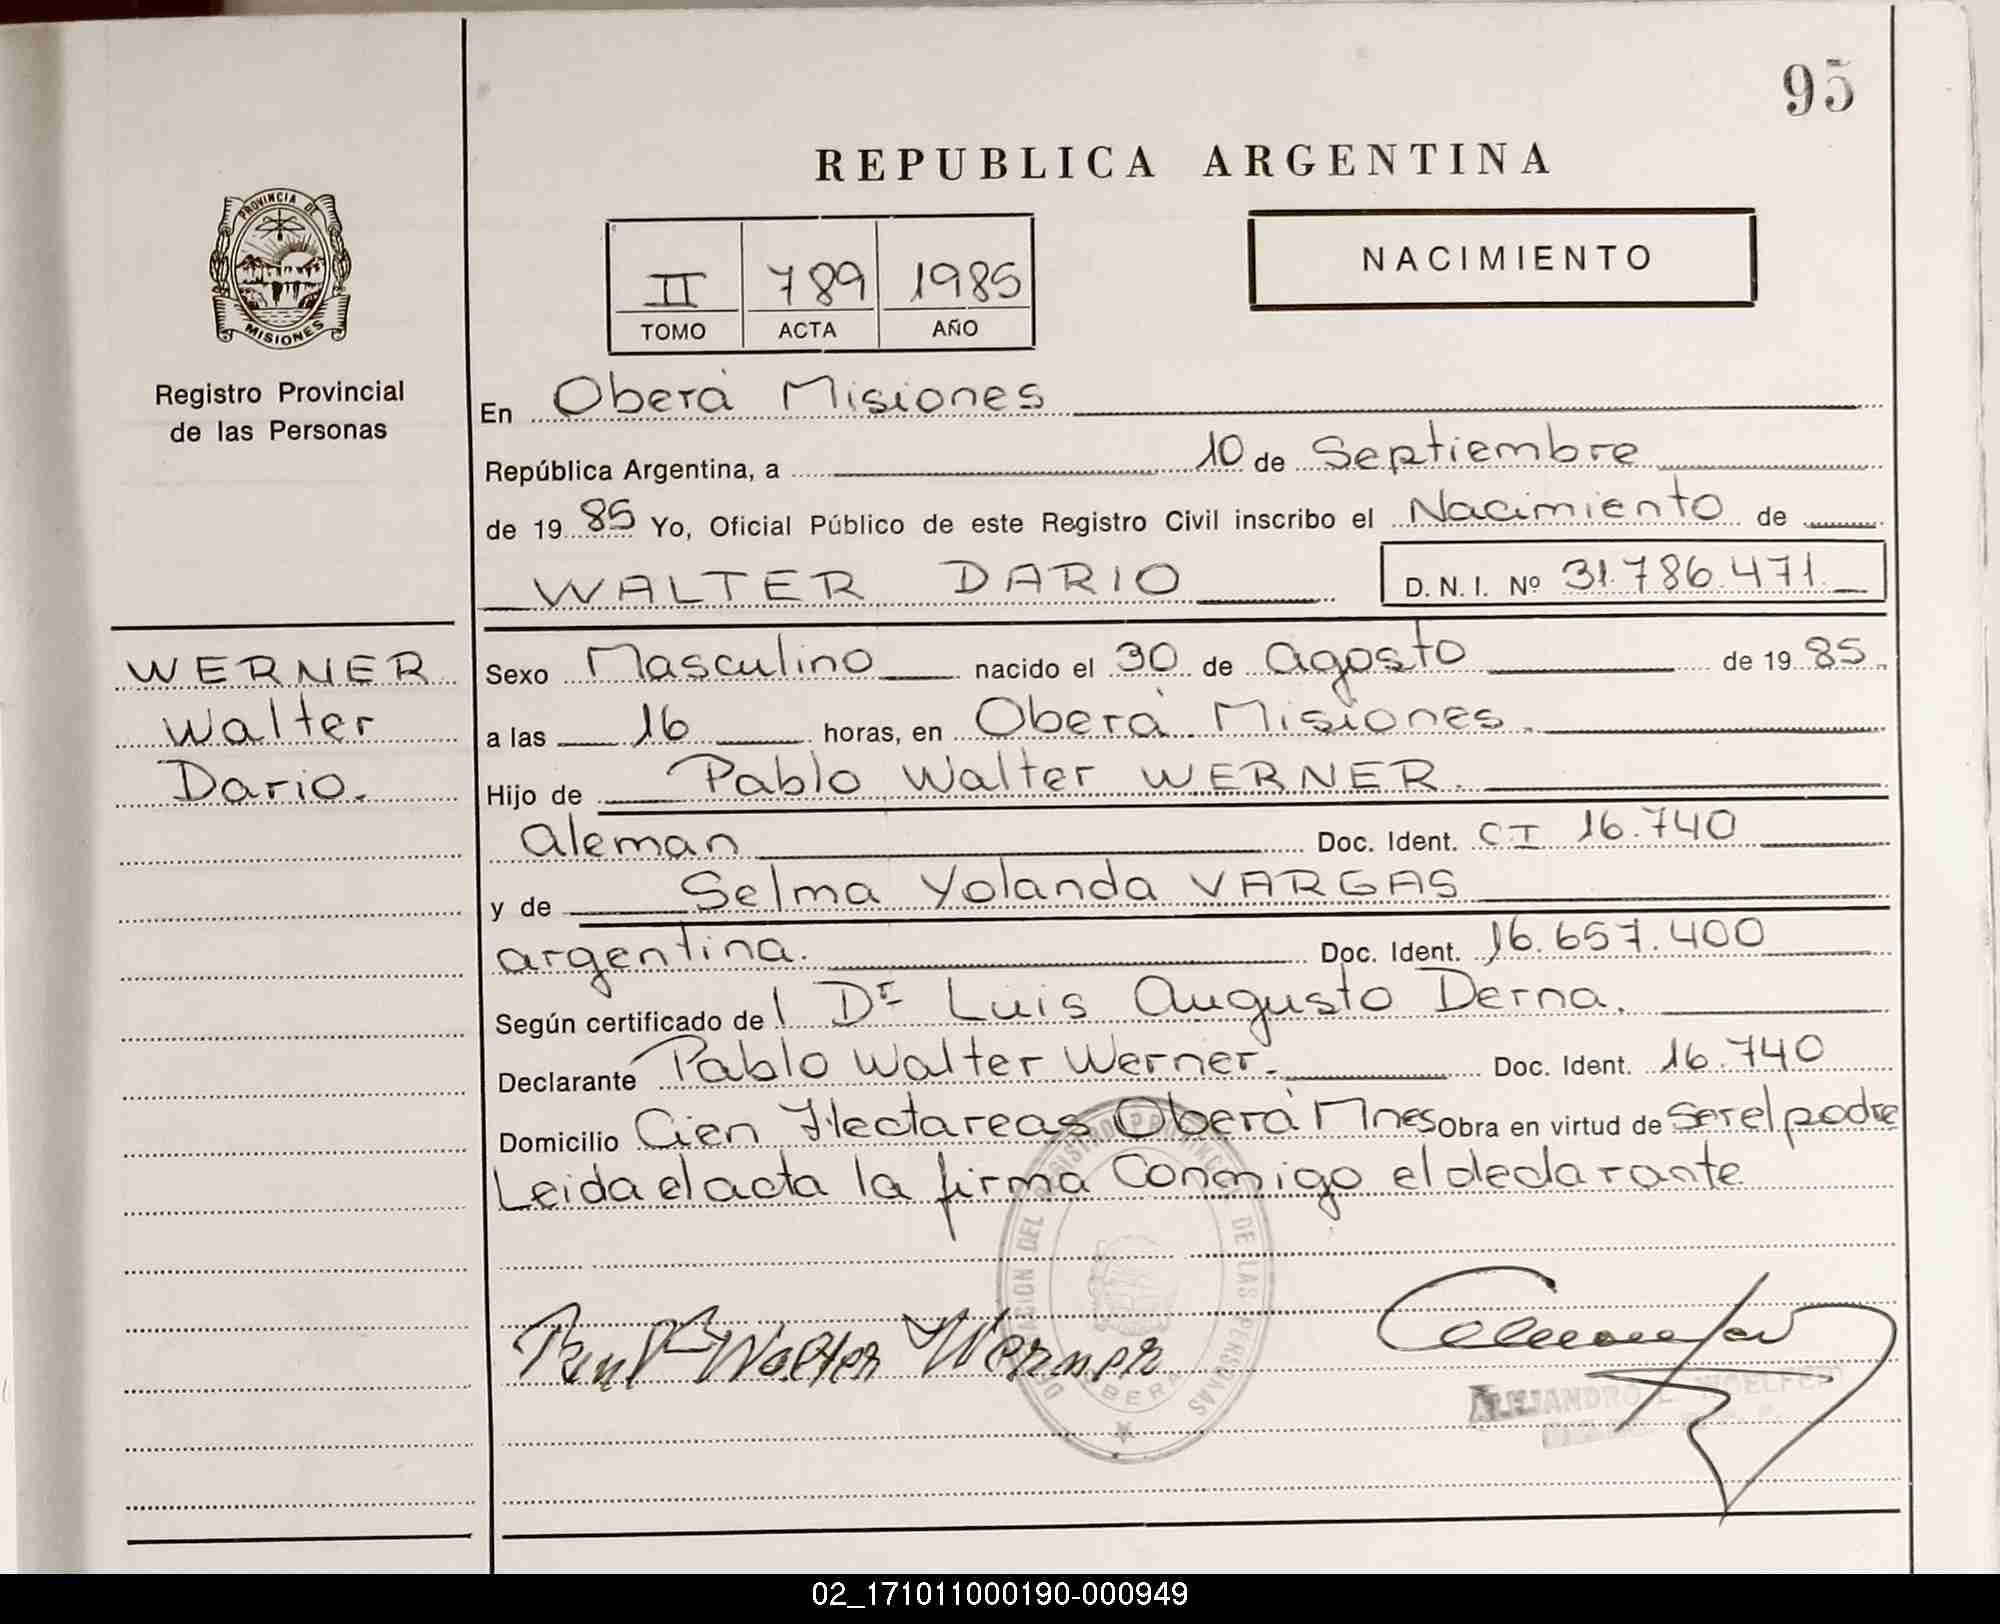 95
REPUBLICA ARGENTINA
PROVINCIA DE
MISIONES
Registro Provincial
de las Personas
II 789 1985
TOMO ACTA AÑO
NACIMIENTO
En Oberá Misiones
República Argentina, a 10 de Septiembre
de 19 85 Yo, Oficial Público de este Registro Civil inscribo el Nacimiento de
WALTER DARIO D. N. I. Nº 31.786.471
WERNER
Walter
Dario.
Sexo Masculino nacido el 30 de agosto de 19 85
a las 16 horas, en Oberá Misiones.
Hijo de Pablo Walter WERNER.
aleman Doc. Ident. CI 16.740
y de Selma Yolanda VARGAS
argentina. Doc. Ident. 16.657.400
Según certificado del Dr Luis Augusto Derna.
Declarante Pablo Walter Werner. Doc. Ident. 16.740
Domicilio Cien Hectareas Oberá Mnes Obra en virtud de ser el padre
Leida el acta la firma Conmigo el declarante
DEL REGISTRO DE LAS PERSONAS
OBERA
Walter Werner
ALEJANDRO
02_171011000190-000949